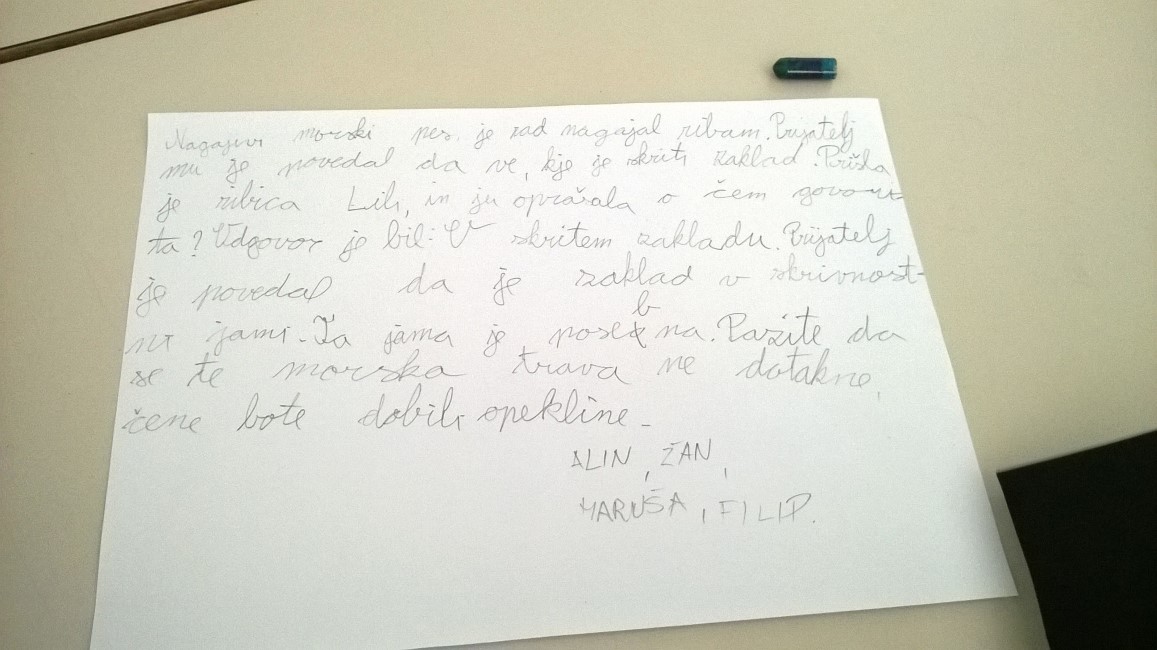 Nagajivi morski pes. je rad nagajal ribam. Prijatelj
mu je povedal da ve, kje je skriti zaklad. Prišla
je ribica Lili, in ju oprašala o čem govori
ta? Udgovor je bil: V skritem zakladu. Prijatelj
je povedal da je zaklad v skrivnost-
ni jami. Ta jama je posebna. Pazite da
se te morska trava ne dotakne,
čene bote dobili opekline.
ALIN, ŽAN,
MARUŠA, FILIP.